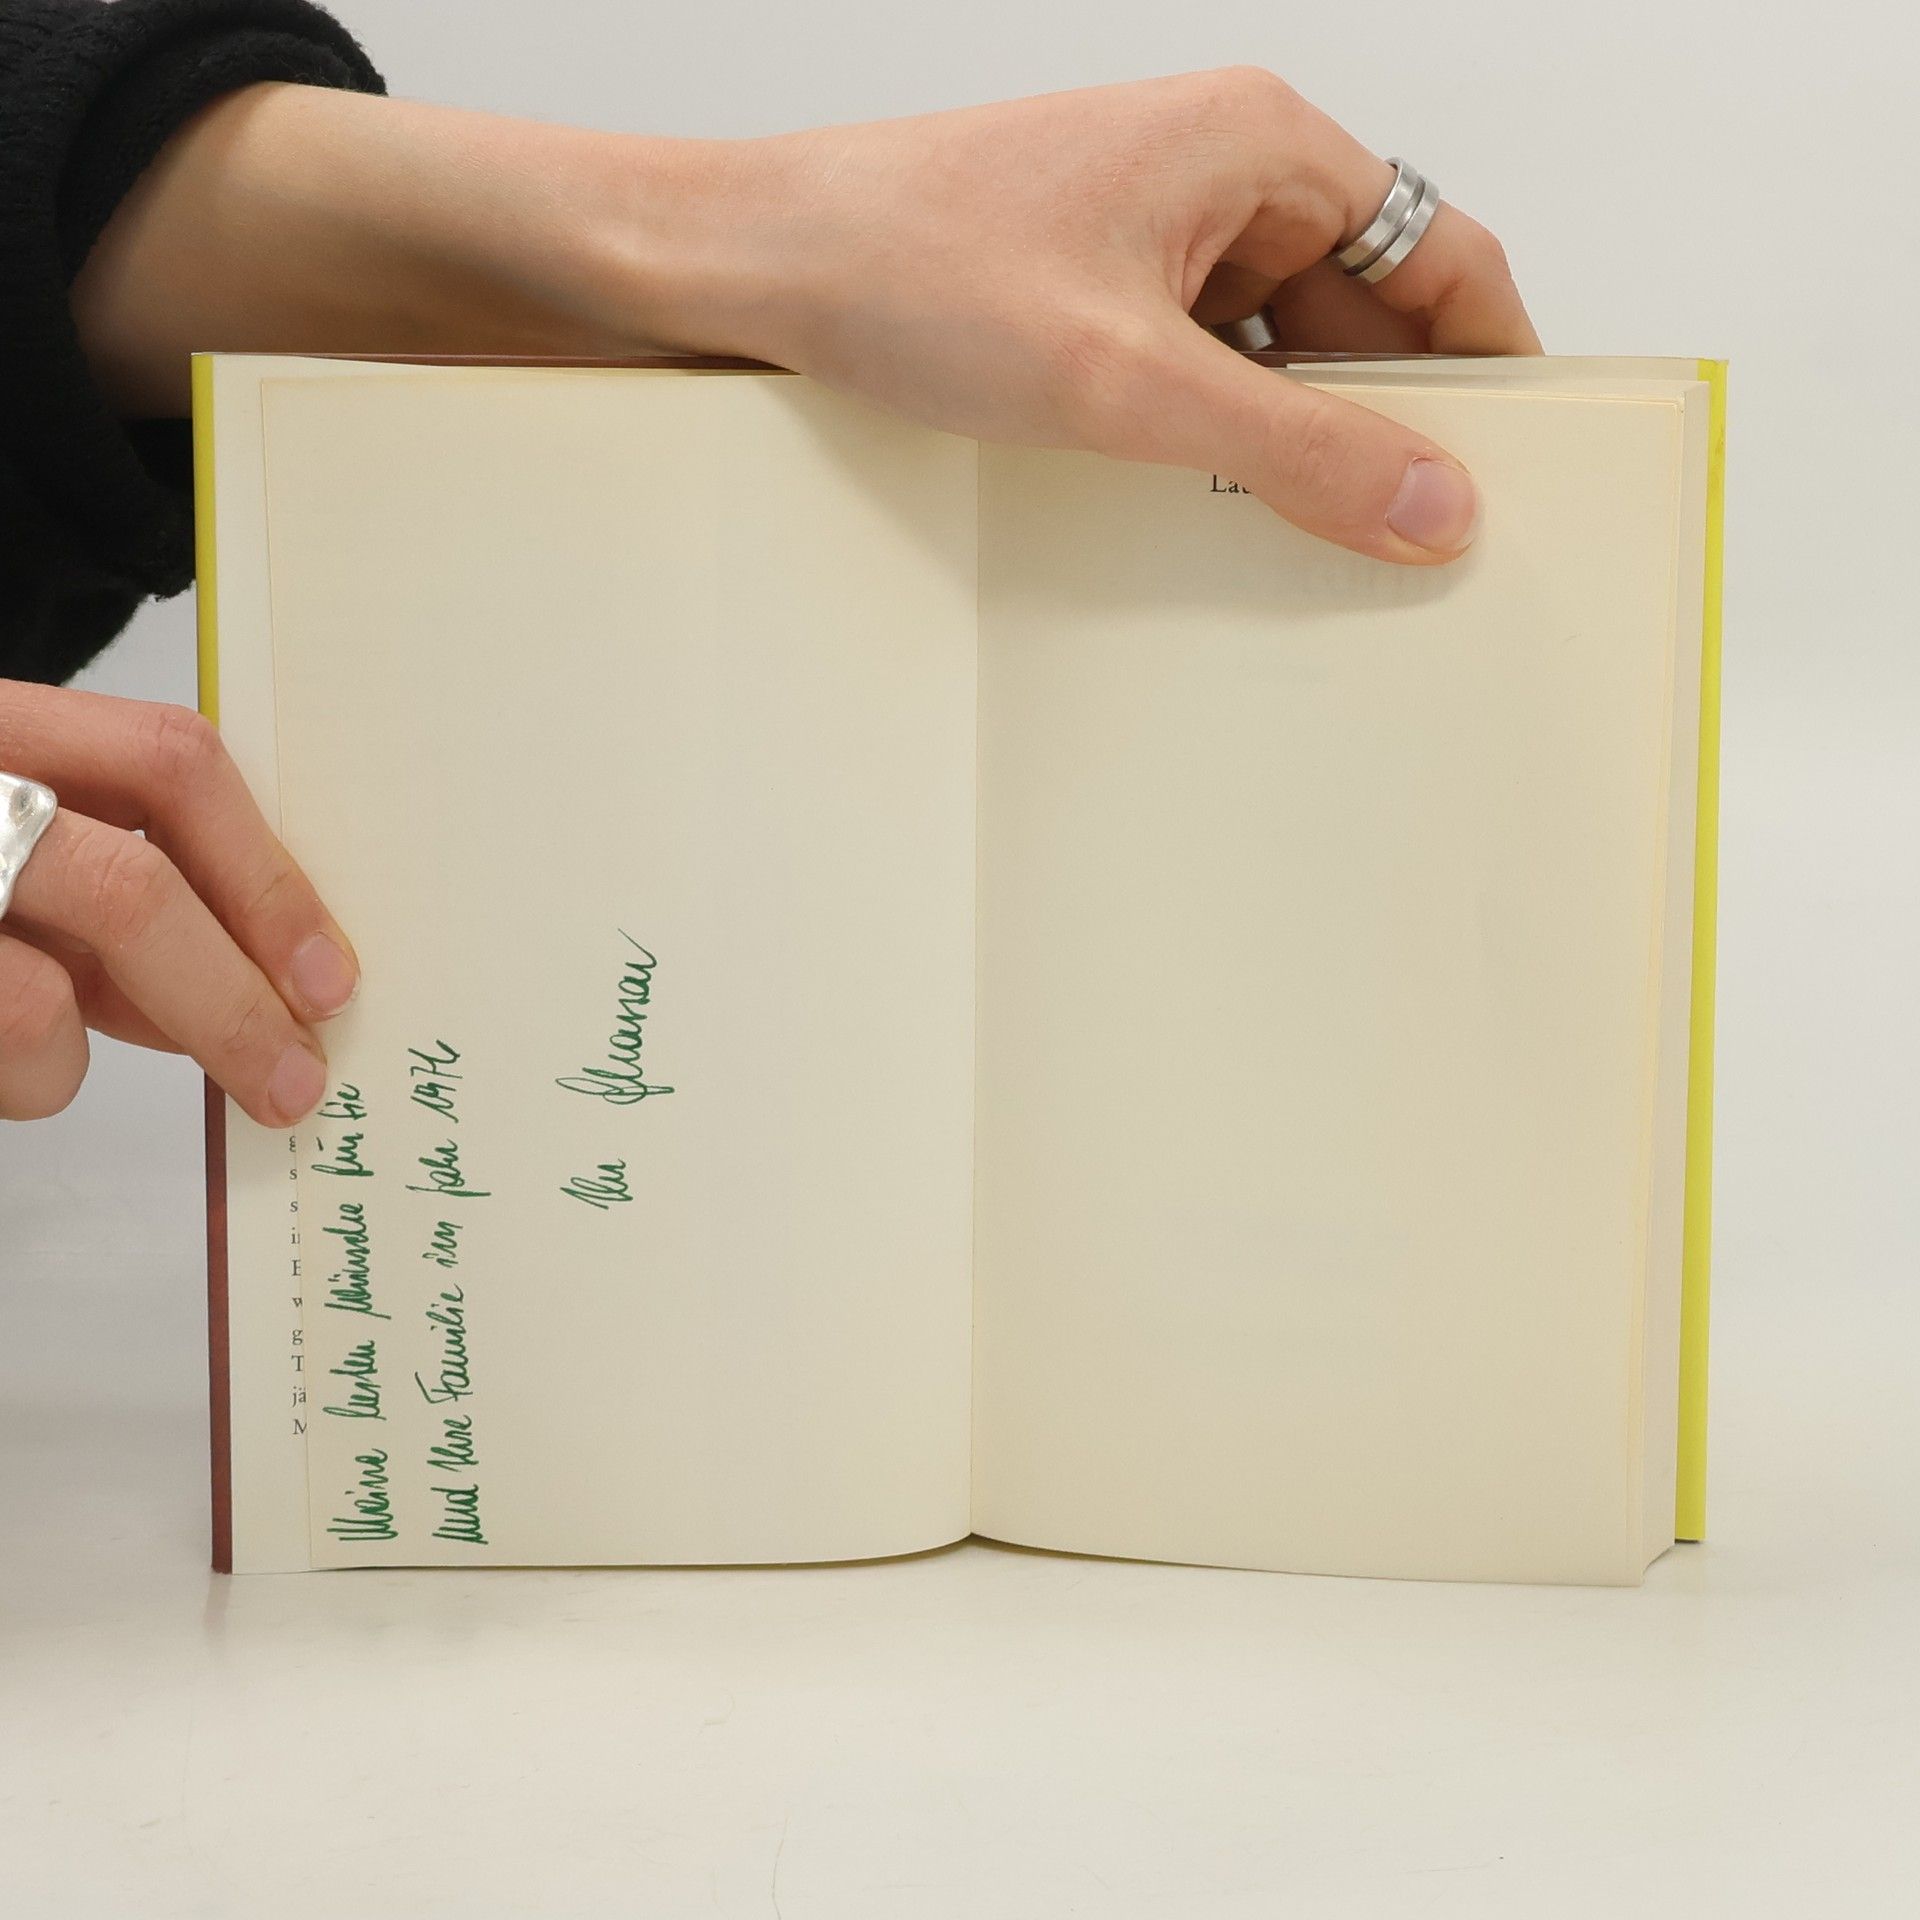 Meine besten Wünsche für Sie
und Ihre Familie im Jahr 1976
Ihr
La
g
s
s
E
w
g
T
jä
M